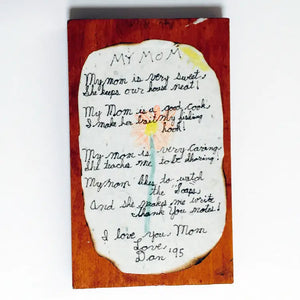 MY MOM
My mom is very sweet
She keeps our house neat!
My Mom is a good cook
I make her bait my fishing
hook!
My mom is very caring
She teachs me to be sharing!
My mom likes to watch
the Soaps
And she makes me write
thank you notes!
I love you Mom
Love,
Dan '95